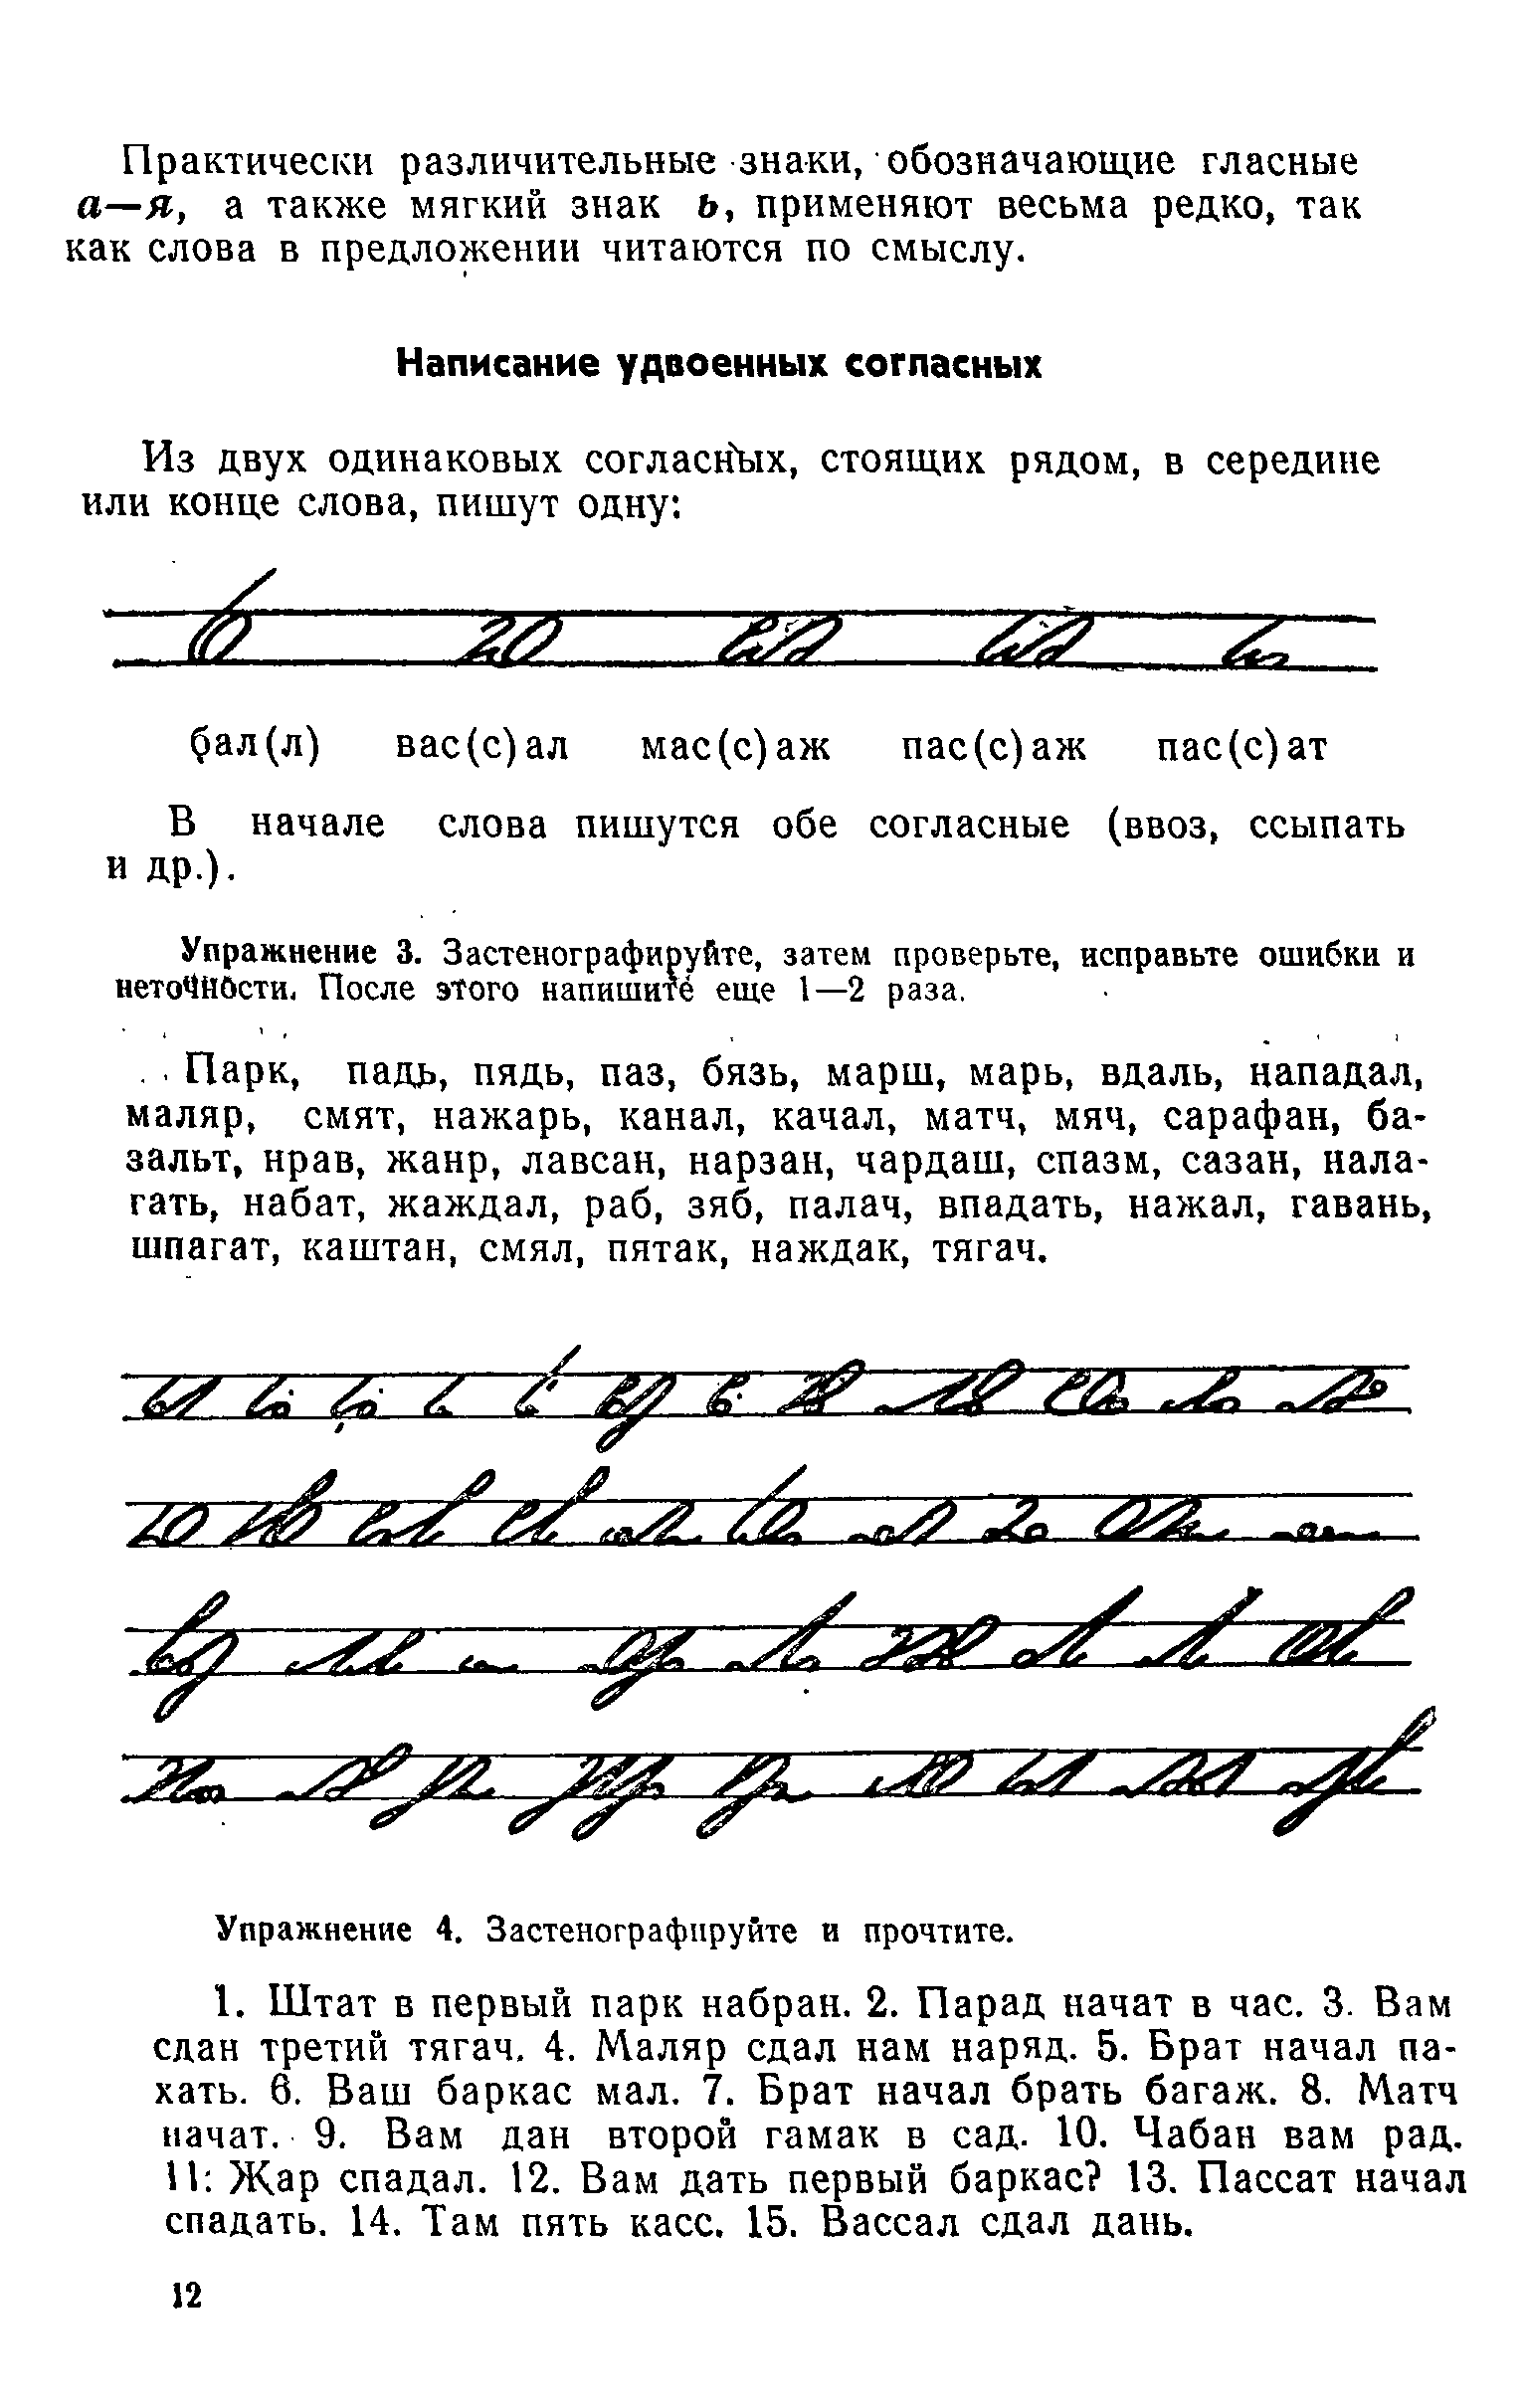 Практически различительные знаки, обозначающие гласные
а—я, а также мягкий знак ь, применяют весьма редко, так
как слова в предложении читаются по смыслу.
Написание удвоенных согласных
Из двух одинаковых согласных, стоящих рядом, в середине
или конце слова, пишут одну:
бал(л) вас(с)ал мас(с)аж пас(с)аж пас(с)ат
В начале слова пишутся обе согласные (ввоз, ссыпать
и др.).
Упражнение 3. Застенографируйте, затем проверьте, исправьте ошибки и
неточности. После этого напишите еще 1—2 раза.
Парк, падь, пядь, паз, бязь, марш, марь, вдаль, нападал,
маляр, смят, нажарь, канал, качал, матч, мяч, сарафан, ба-
зальт, нрав, жанр, лавсан, нарзан, чардаш, спазм, сазан, нала-
гать, набат, жаждал, раб, зяб, палач, впадать, нажал, гавань,
шпагат, каштан, смял, пятак, наждак, тягач.
Упражнение 4. Застенографируйте и прочтите.
1. Штат в первый парк набран. 2. Парад начат в час. 3. Вам
сдан третий тягач. 4. Маляр сдал нам наряд. 5. Брат начал па-
хать. 6. Ваш баркас мал. 7. Брат начал брать багаж. 8. Матч
начат. 9. Вам дан второй гамак в сад. 10. Чабан вам рад.
11: Жар спадал. 12. Вам дать первый баркас? 13. Пассат начал
спадать. 14. Там пять касс. 15. Вассал сдал дань.
12